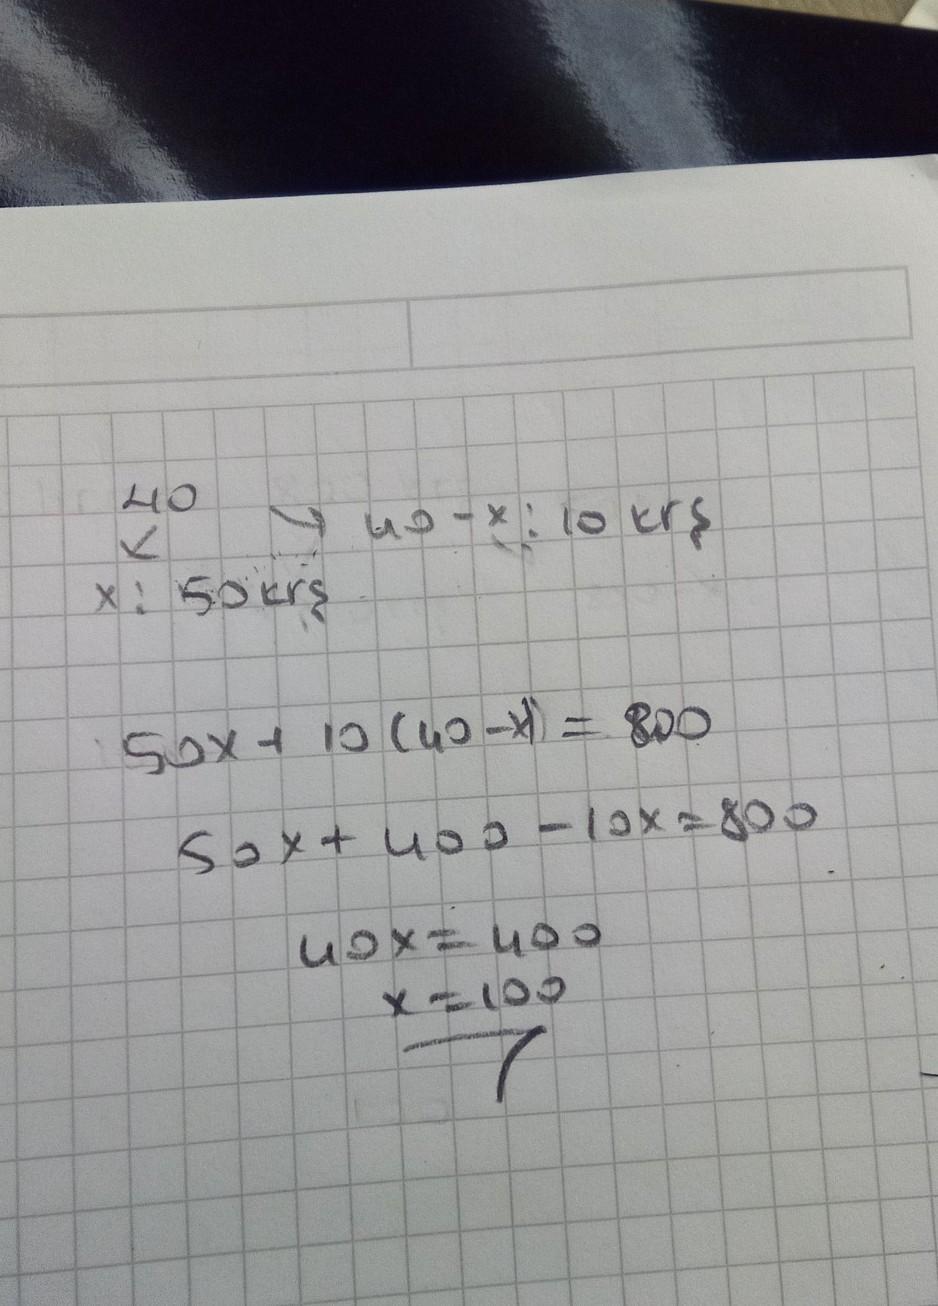 40 → 40-x: 10 krş
x: 50 krş
50x + 10 (40-x) = 800
50x + 400 - 10x = 800
40x = 400
x = 100